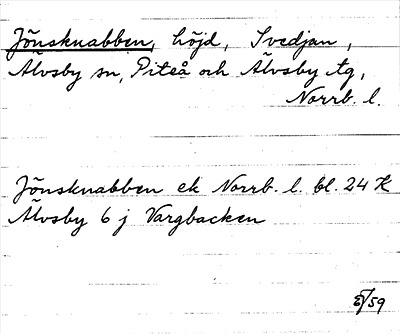 Jönsknabben, höjd, Svedjan,
Älvsby sn, Piteå och Älvsby tg,
Norrb. l.
Jönsknabben ek Norrb. l. bl. 24 K
Älvsby 6 j Vargbacken